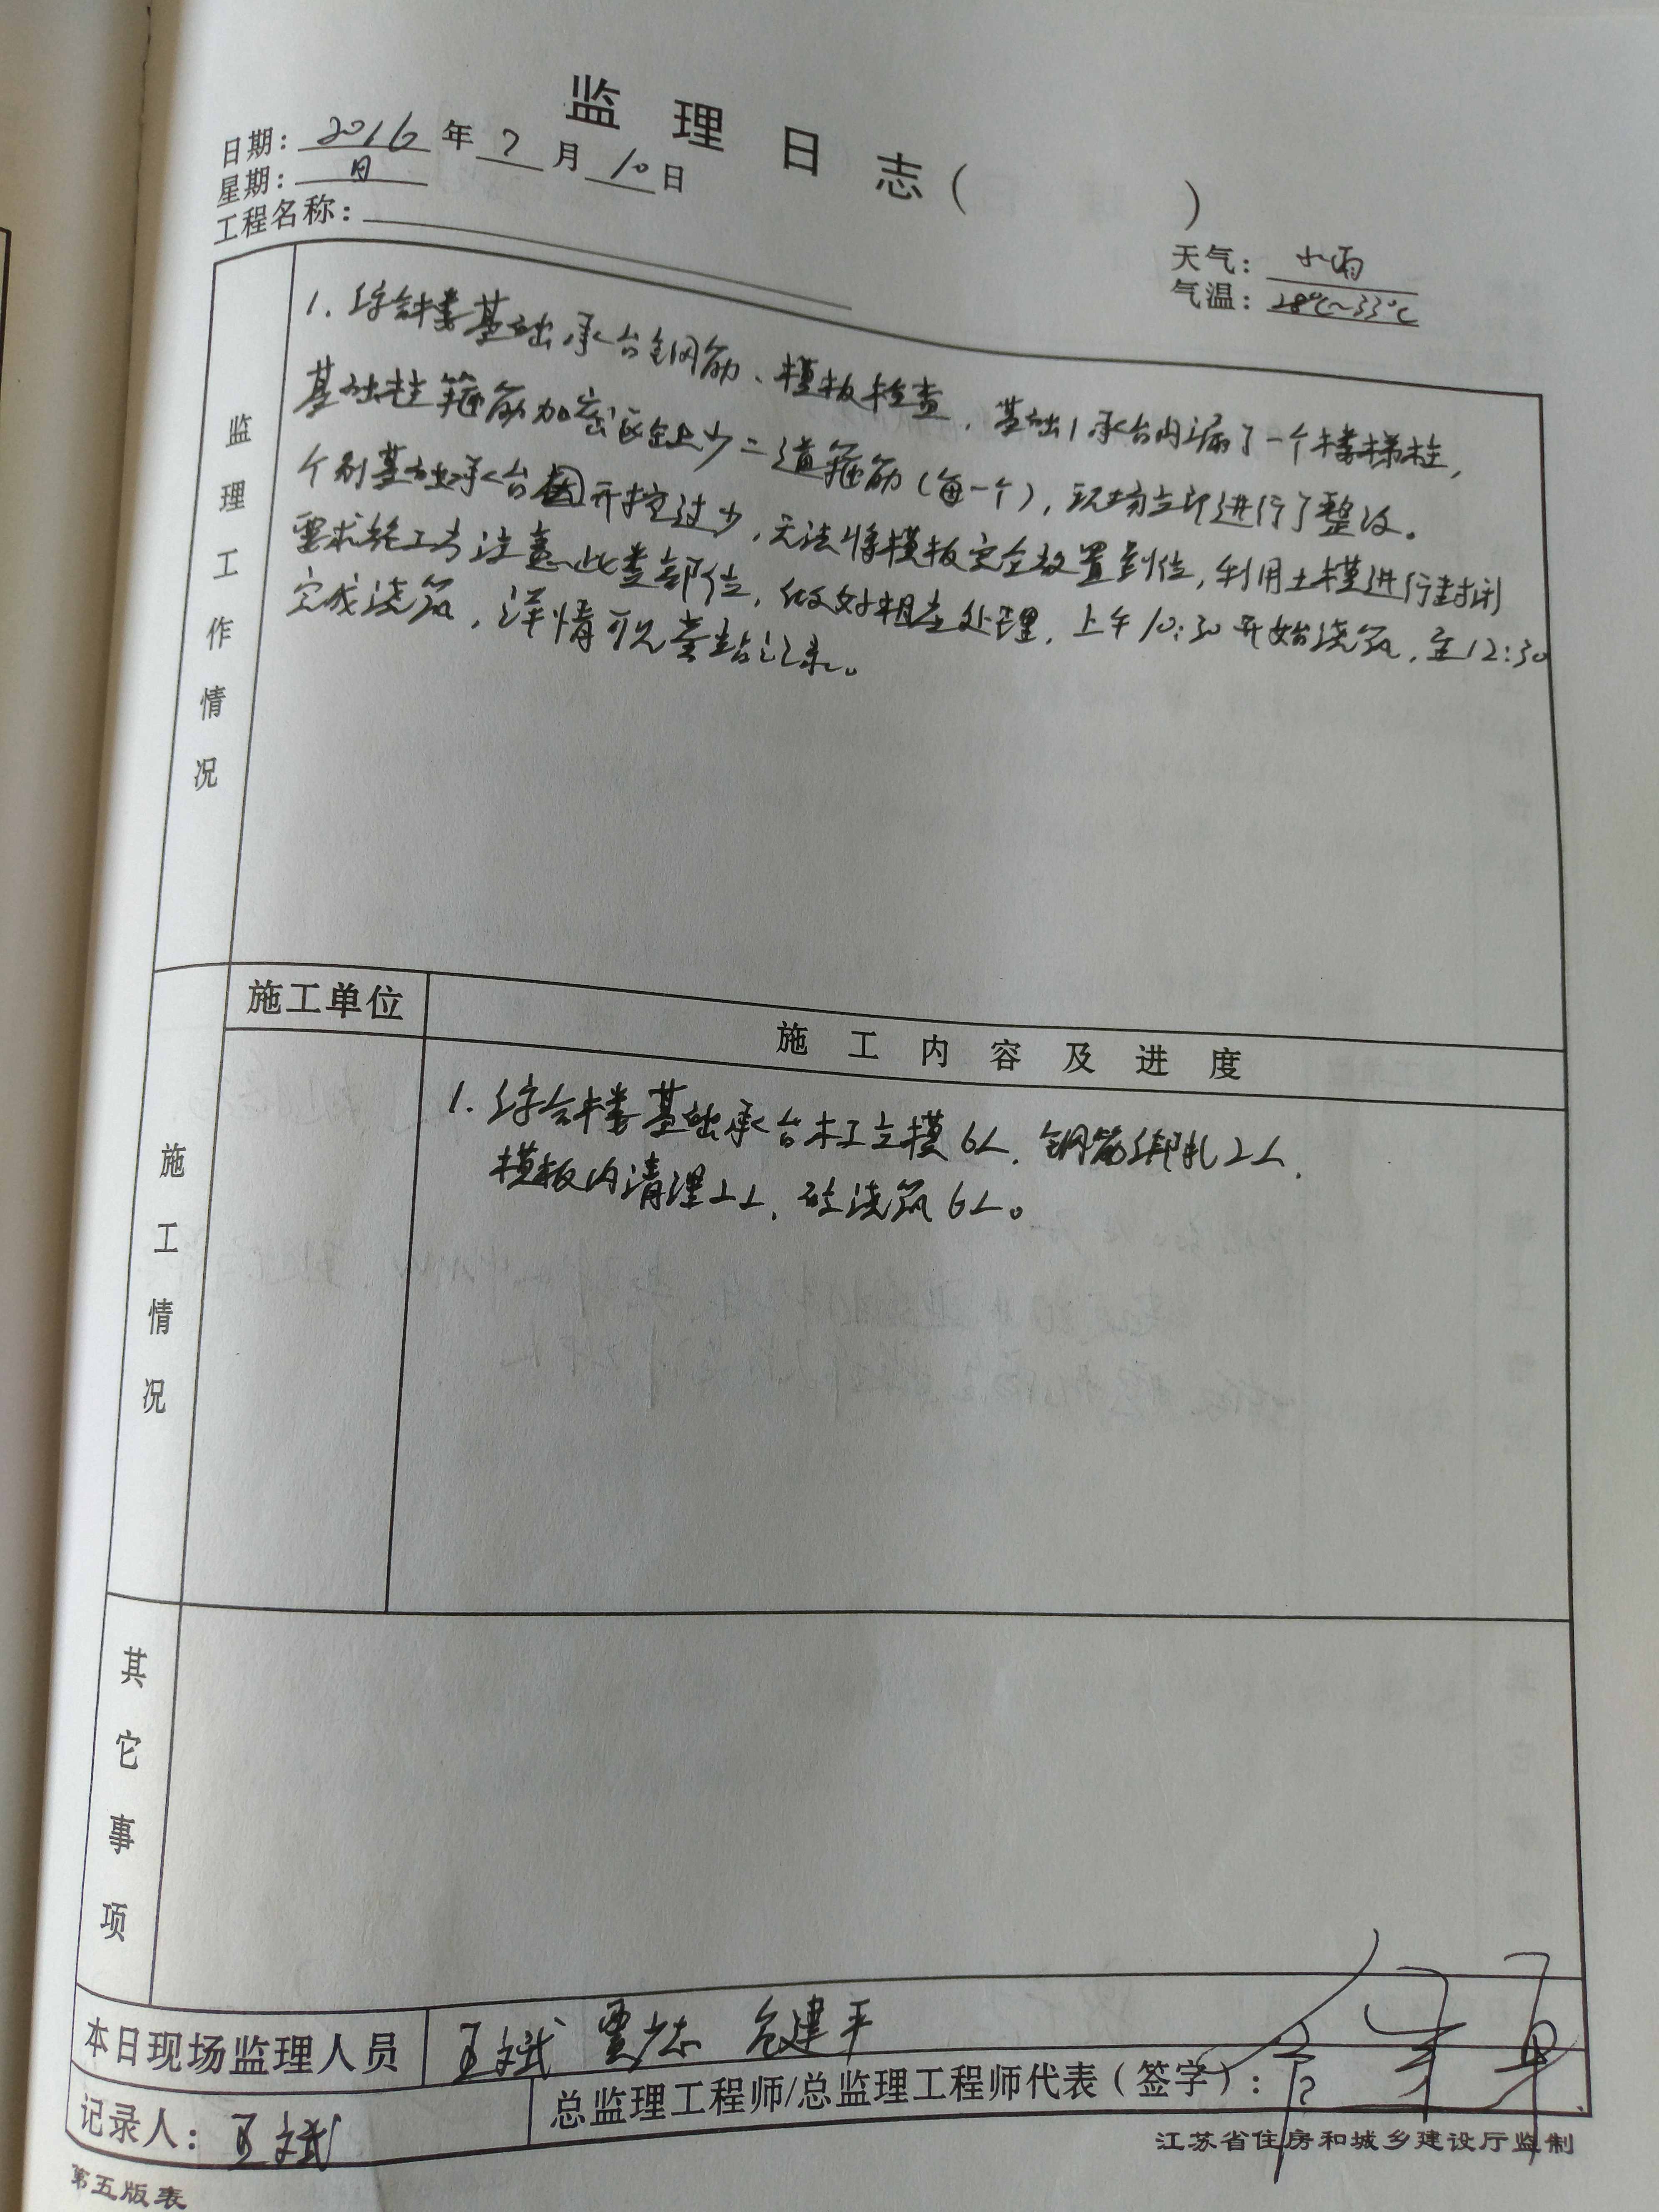 监理日志（ ）
日期：2016年7月10日
星期：日
工程名称：
天气：小雨
气温：28℃～33℃
监理工作情况
1. 综合楼基础承台钢筋、模板检查，基础1承台内漏了一个楼梯柱，
基础柱箍筋加密区至上少二道箍筋（每一个），现场立即进行了整改。
个别基础承台因开挖过少，无法将模板完全放置到位，利用土模进行封闭
要求施工方注意此类部位，做好相应处理，上午10:30开始浇筑，至12:30
完成浇筑，详情可见旁站记录。
施工情况
施工单位
施工内容及进度
1. 综合楼基础承台木工立模6人，钢筋绑扎2人，
模板内清理2人，砼浇筑6人。
其它事项
本日现场监理人员 王文斌 贾志 危建平
记录人：王文斌
总监理工程师/总监理工程师代表（签字）：
江苏省住房和城乡建设厅监制
第五版表